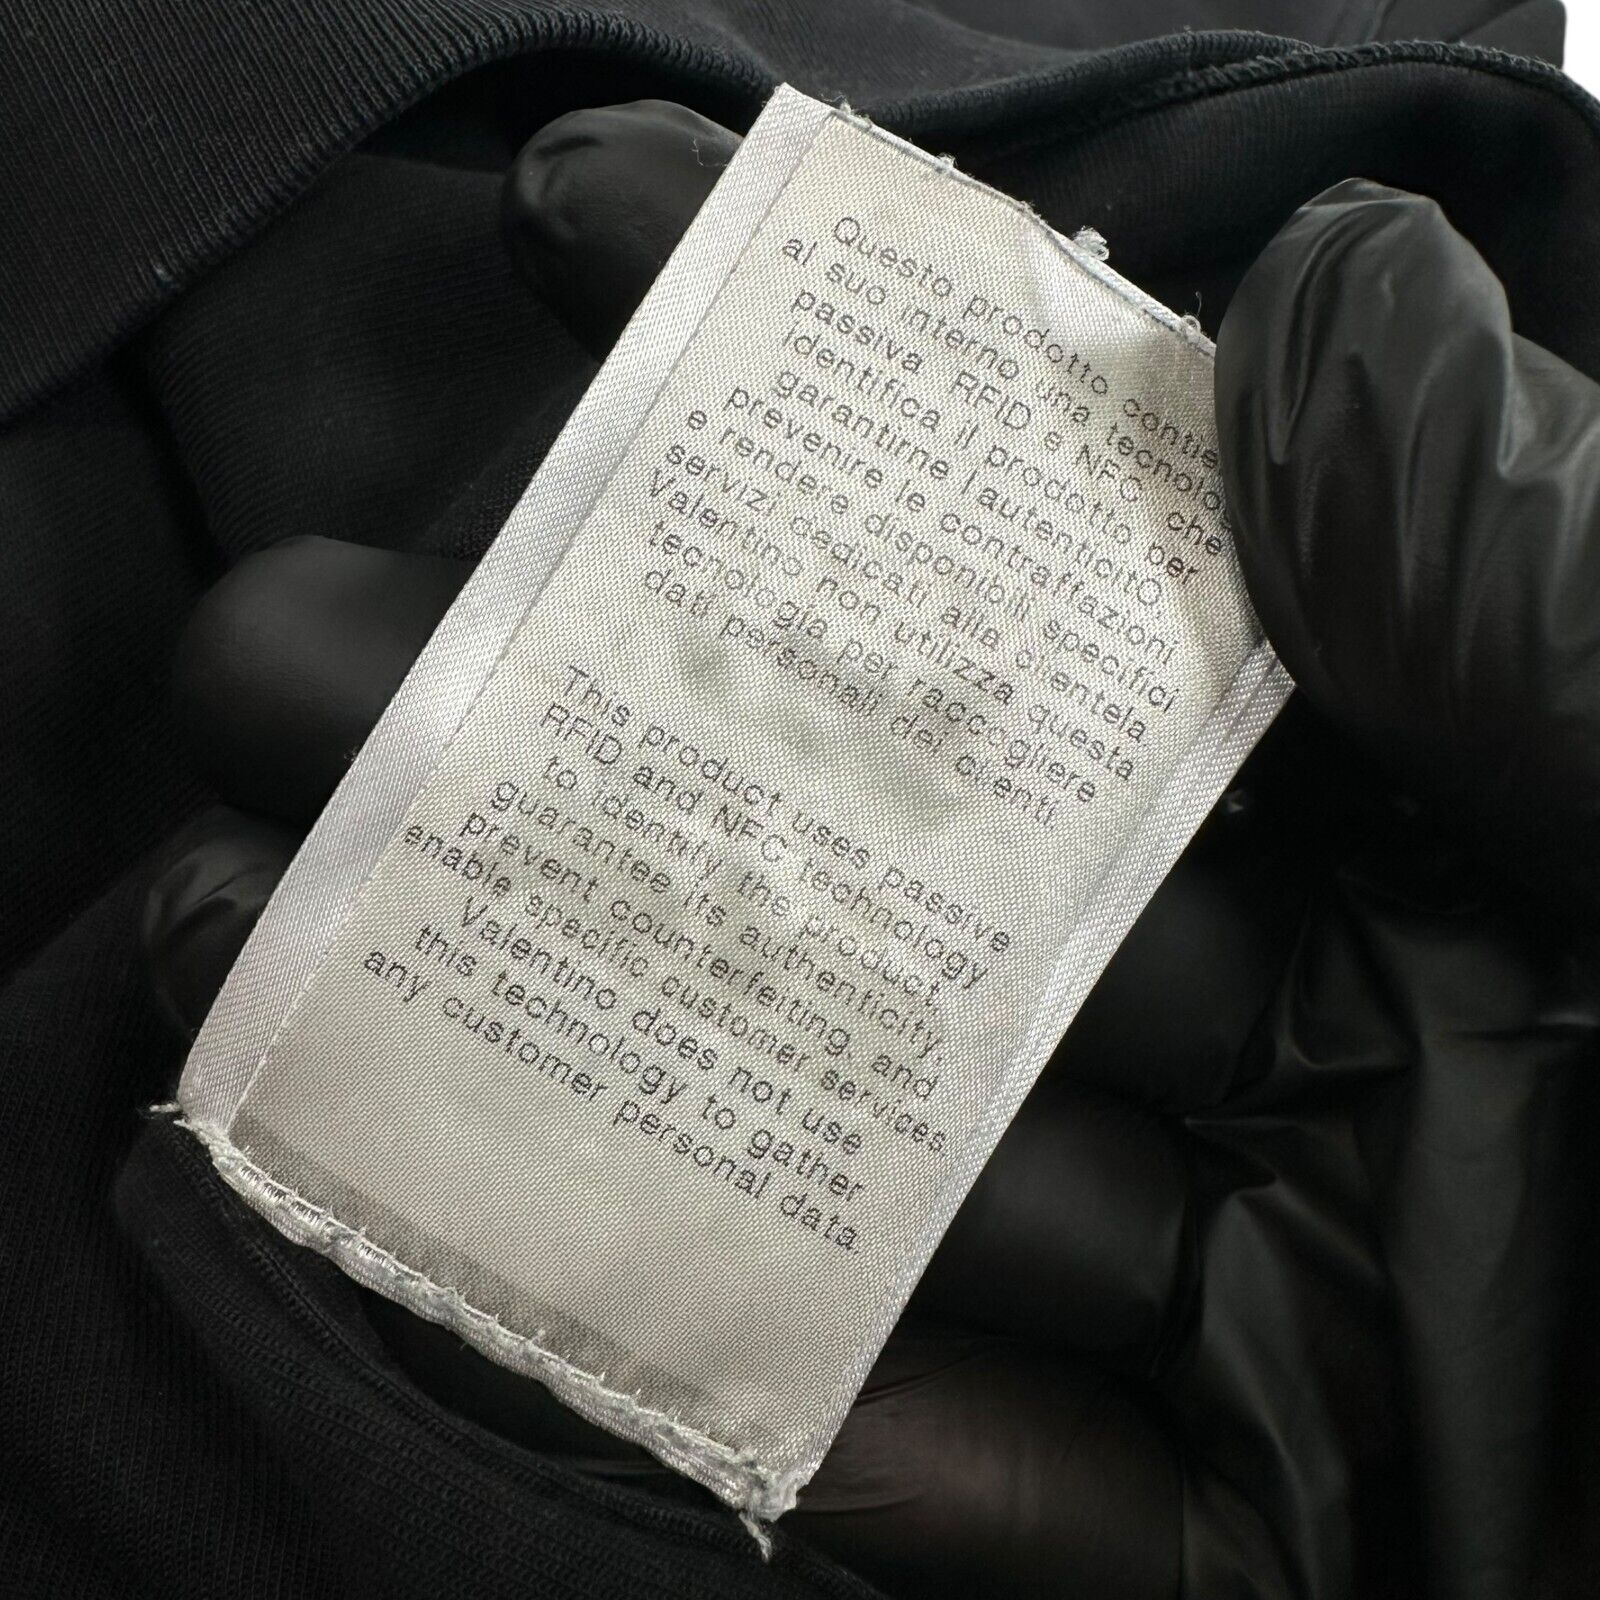 Questo prodotto contie
al suo interno una tecnolo
passiva RFID e NFC che
identifica il prodotto per
garantirne l'autenticitÒ,
prevenire le contraffazioni
e rendere disponibili specifici
servizi dedicati alla clientela.
Valentino non utilizza questa
tecnologia per raccogliere
dati personali dei clienti.
This product uses passive
RFID and NFC technology
to identify the product,
guarantee its authenticity,
prevent counterfeiting, and
enable specific customer services.
Valentino does not use
this technology to gather
any customer personal data.